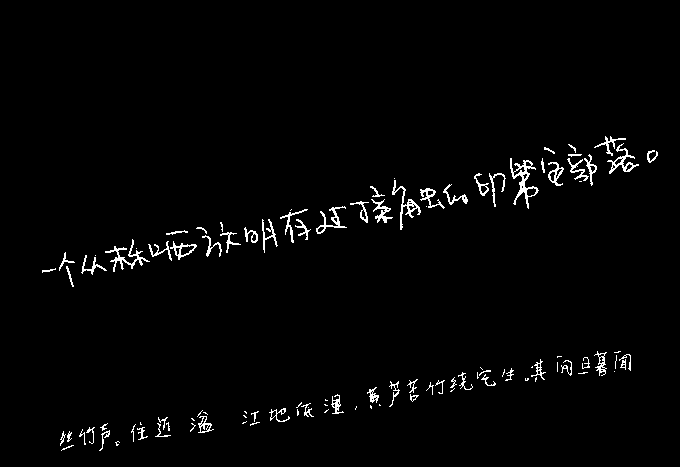 一个从未和西方文明有过接触的印第安部落。
丝竹声。住近 湓 江地低湿，黄芦苦竹绕宅生。其间旦暮闻